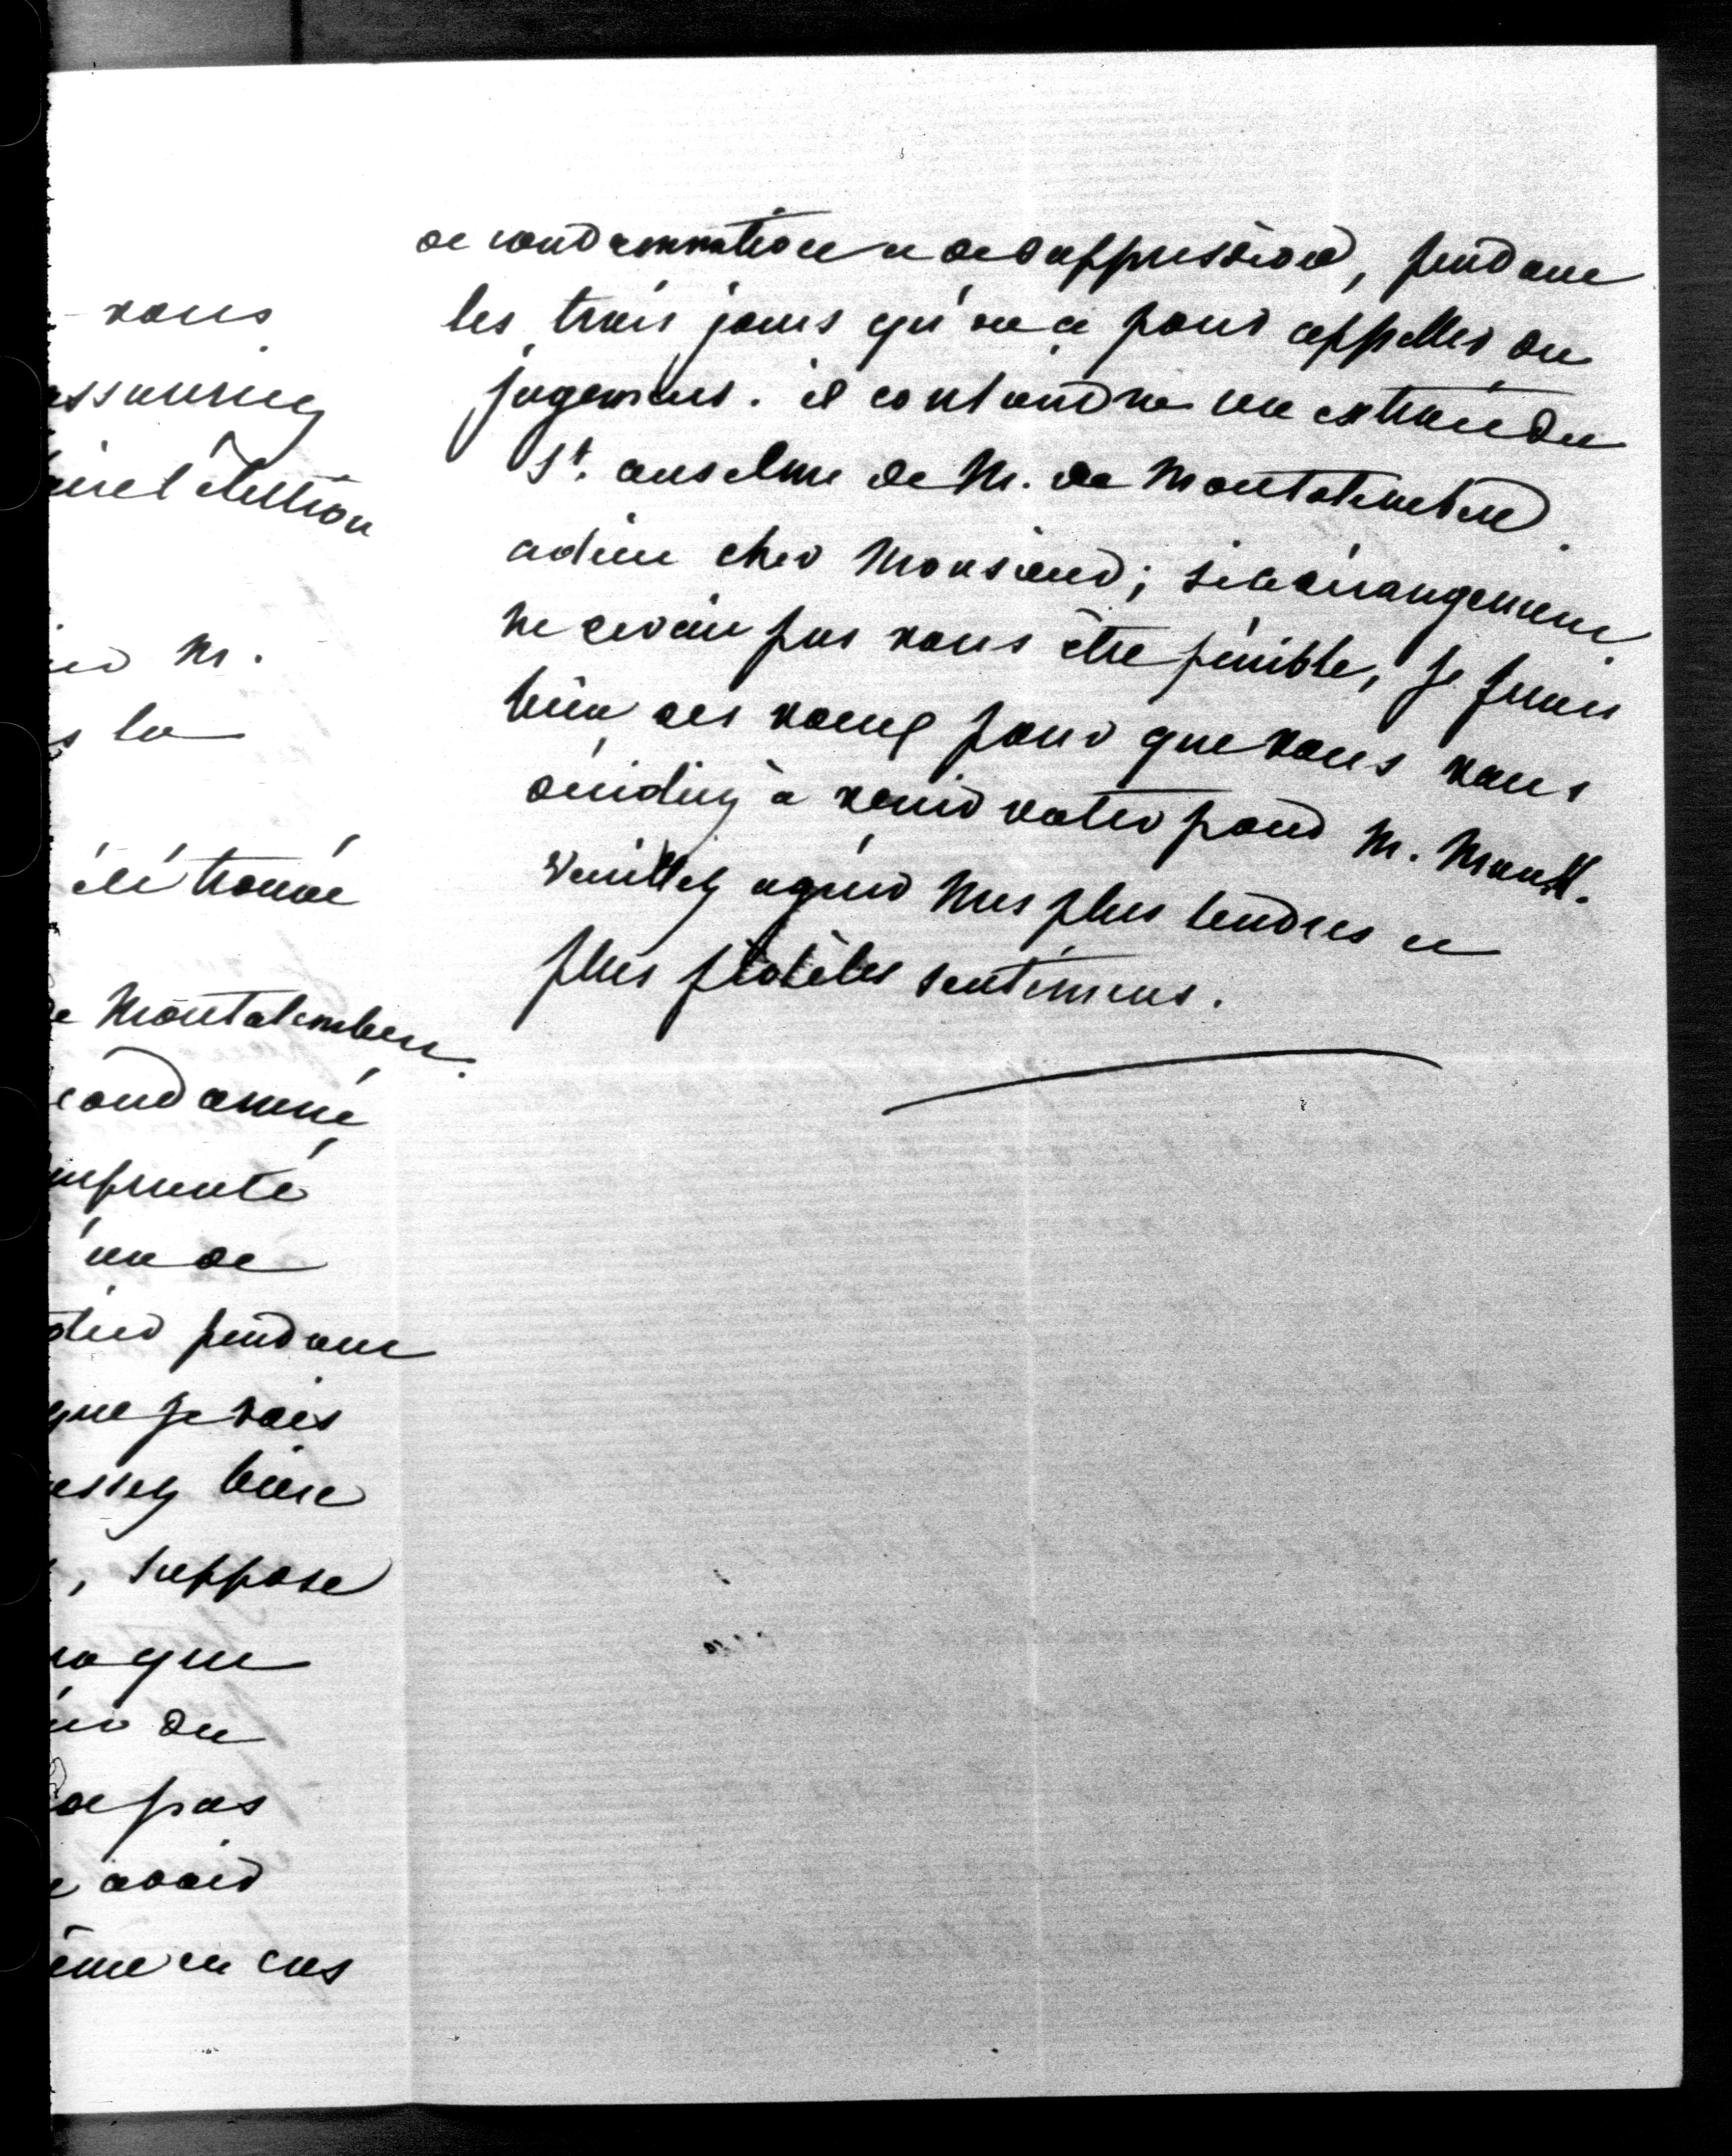 vous
assuriez
élection
M.
la
été trouvé
de Montalembert.
condamné
emprunté
un de
pendant
que je vais
assez bien
, suppose
que
du
de pas
avoir
même en cas
de condamnation et de suppression, pendant
les trois jours qu'on a pour appeller du
jugement. il contiendra un extrait du
St. anselme de M. de Montalembert.
adieu cher Monsieur; si le dérangement
ne devait pas vous être pénible, je ferais
bien des voeux pour que vous vous
décidiez à venir voter pour M.
Veuillez agréer mes plus tendres et
plus fidèles sentimens.